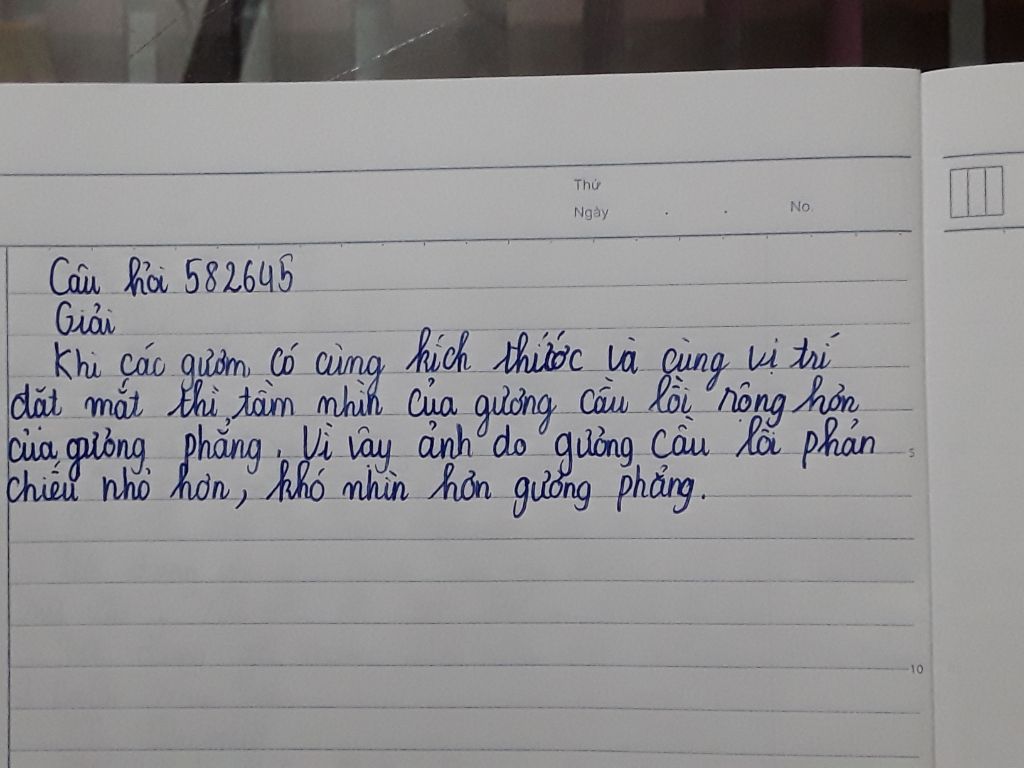 Thứ
Ngày . . No.
Câu hỏi 582645
Giải
Khi các gươm có cùng kích thước và cùng vị trí
đặt mắt thì tầm nhìn của gương cầu lồi rộng hơn
của gương phẳng. Vì vậy ảnh do gương cầu lồi phản
chiếu nhỏ hơn, khó nhìn hơn gương phẳng.
5
10